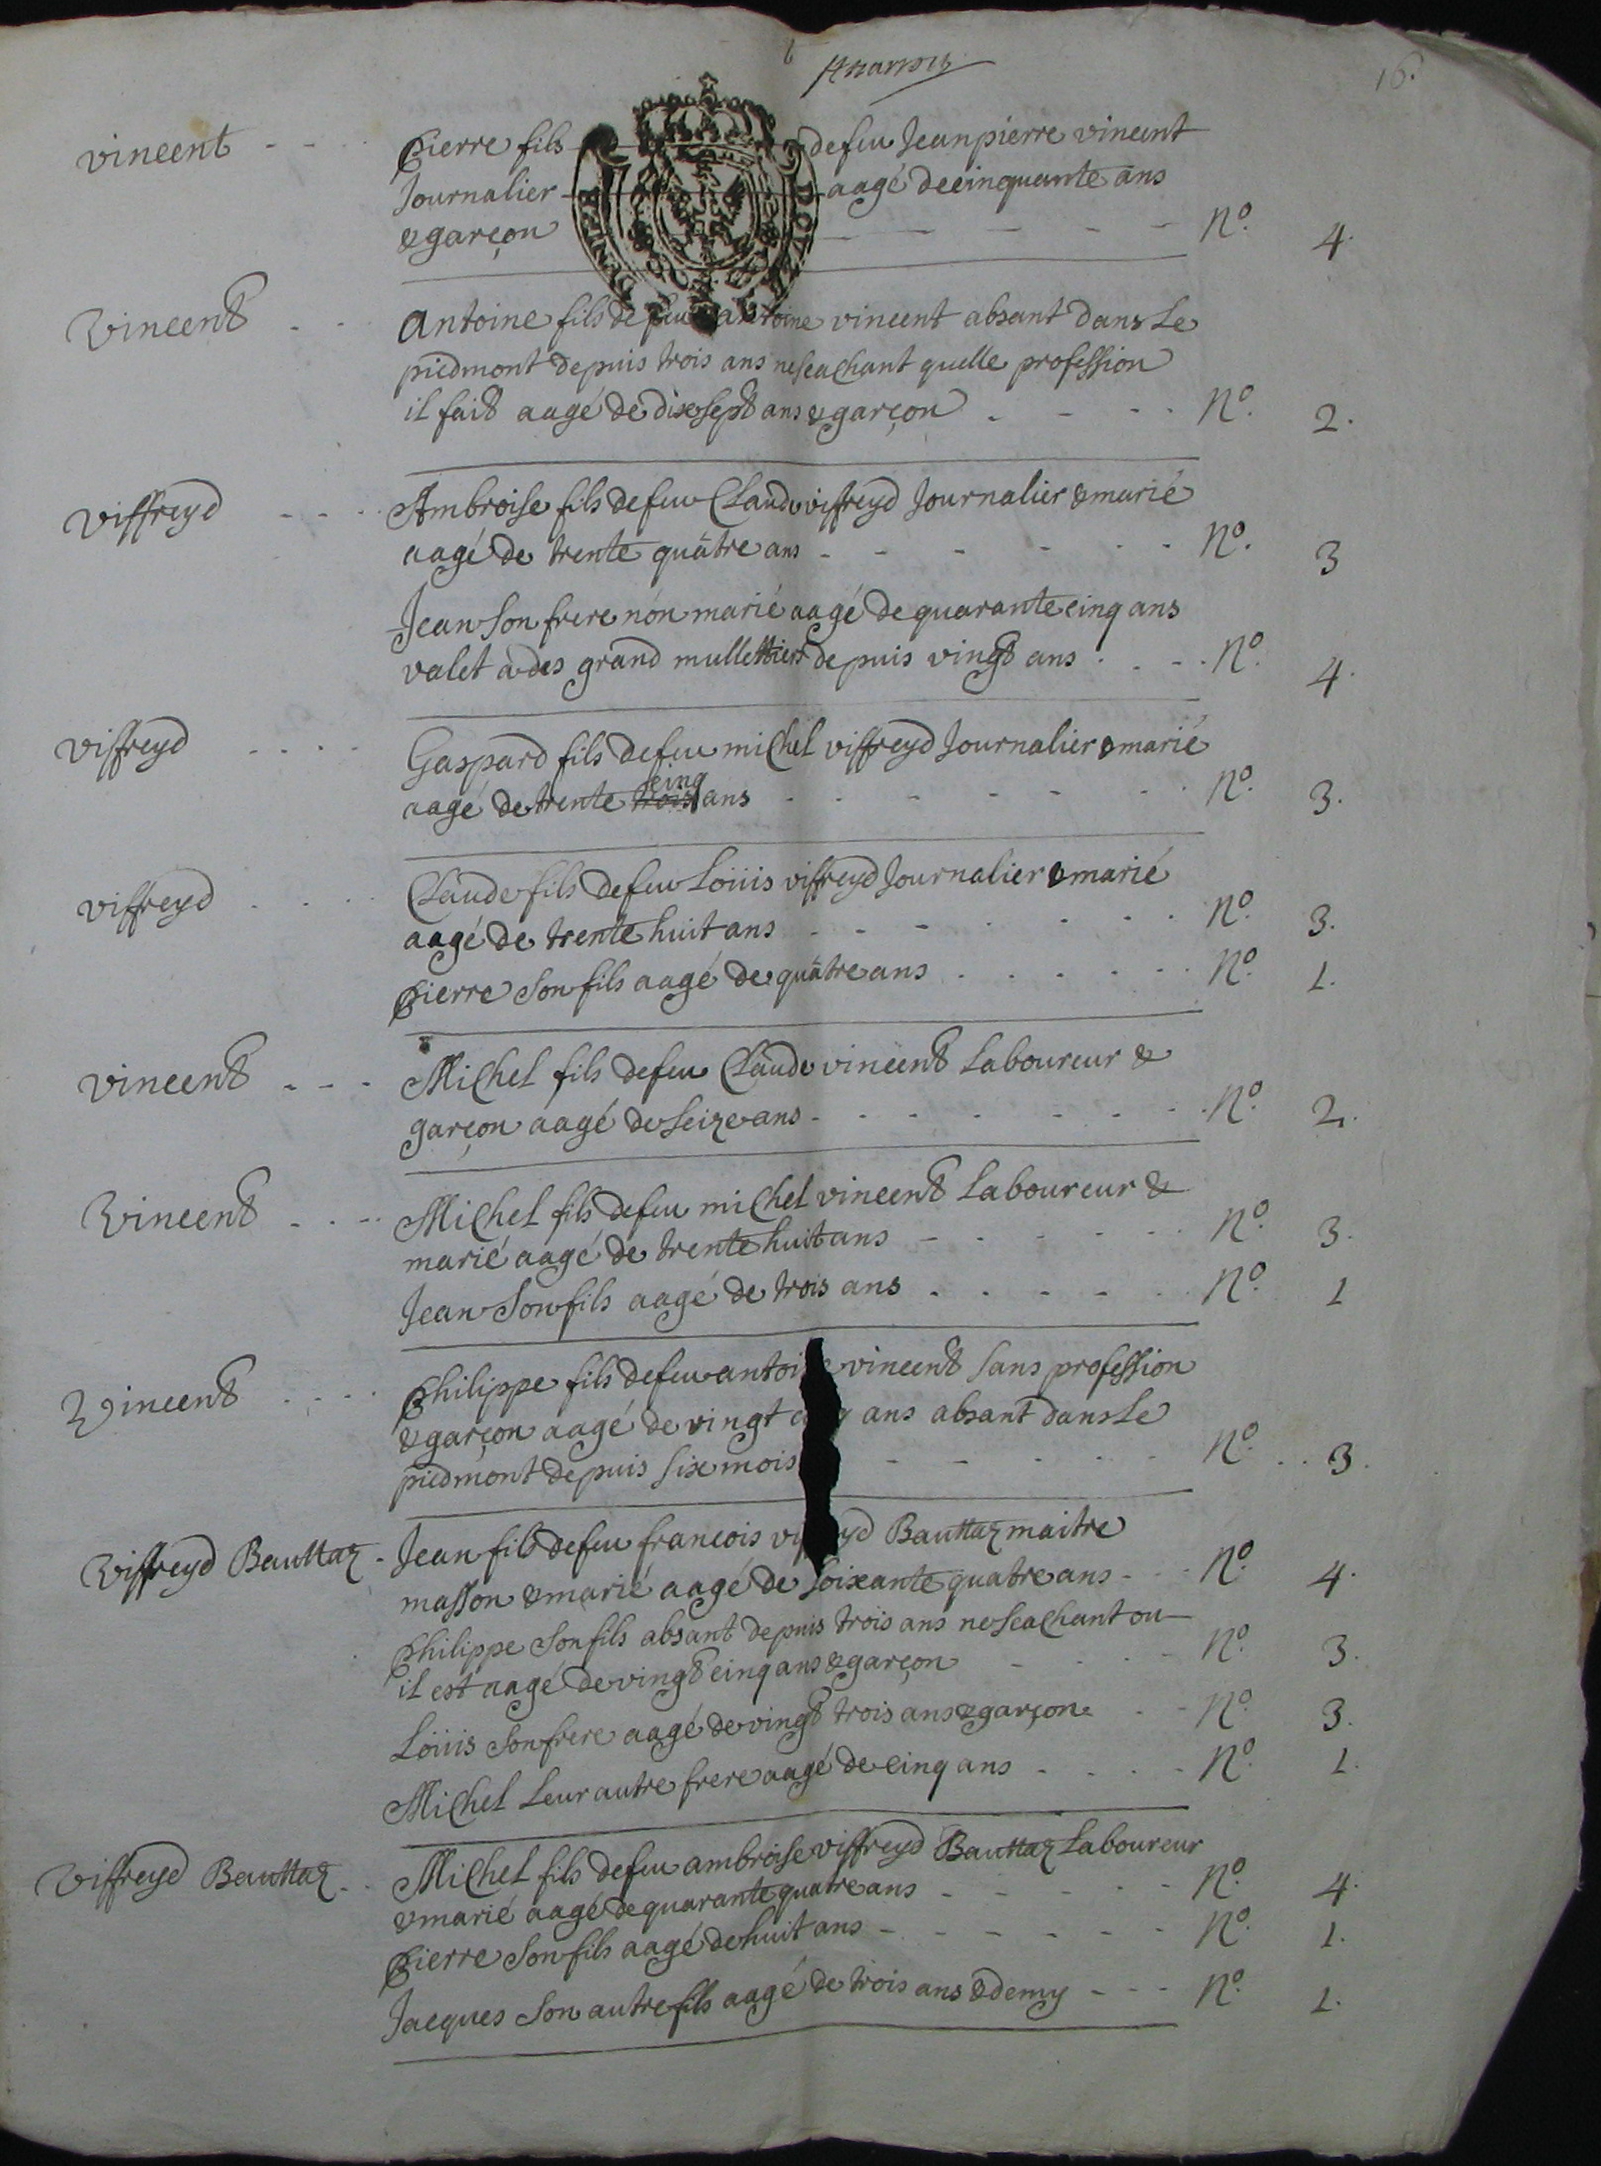 16.
vincent - - Pierre fils de feu Jean pierre vincent
Journalier aagé de cinquante ans
& garçon - - - - - No. 4.
Vincent - - Antoine fils de feu antoine vincent absant dans Le
piedmont depuis trois ans ne scachant quelle profession
il fait aagé de dix sept ans & garçon - - - No. 2.
Viffreyd - - - Ambroise fils de feu Claude viffreyd Journalier & marié
aagé de trente quatre ans - - - - - - No. 3
Jean Son frere non marié aagé de quarante cinq ans
valet a des grand mullettiers depuis vingt ans - - - No. 4.
Viffreyd - - - - Gaspard fils de feu michel viffreyd Journalier & marié
aagé de trente trois cinq ans - - - - - - No. 3.
viffreyd - - - Claude fils de feu Loüis viffreyd Journalier & marié
aagé de trente huit ans - - - - - - No. 3.
Pierre Son fils aagé de quatre ans - - - - - No. 1.
Vincent - - - Michel fils de feu Claude vincent Laboureur &
garçon aagé de Seize ans - - - - - - - No. 2.
Vincent - - - Michel fils de feu michel vincent Laboureur &
marié aagé de trente huit ans - - - - - No. 3.
Jean Son fils aagé de trois ans - - - - - No. 1
Vincent - - - Philippe fils de feu antoi e vincent Sans profession
& garçon aagé de vingt c q ans absant dans Le
piedmont depuis Six mois - - - - - No. 3.
Viffreyd Bauttaz - Jean fils de feu francois vi yd Bauttaz maitre
masson & marié aagé de Soixante quatre ans - - - No. 4.
Philippe Son fils absant depuis trois ans ne Scachant ou
il est aagé de vingt cinq ans & garçon - - - - No. 3.
Loüis Son frere aagé de vingt trois ans & garçon - - No. 3.
Michel Leur autre frere aagé de cinq ans - - - - No. 1.
Viffreyd Bauttaz - - Michel fils de feu ambroise viffreyd Bauttaz Laboureur
& marié aagé de quarante quatre ans - - - - - No. 4.
Pierre Son fils aagé de huit ans - - - - - - No. 1.
Jacques Son autre fils aagé de trois ans & demy - - - No. 1.